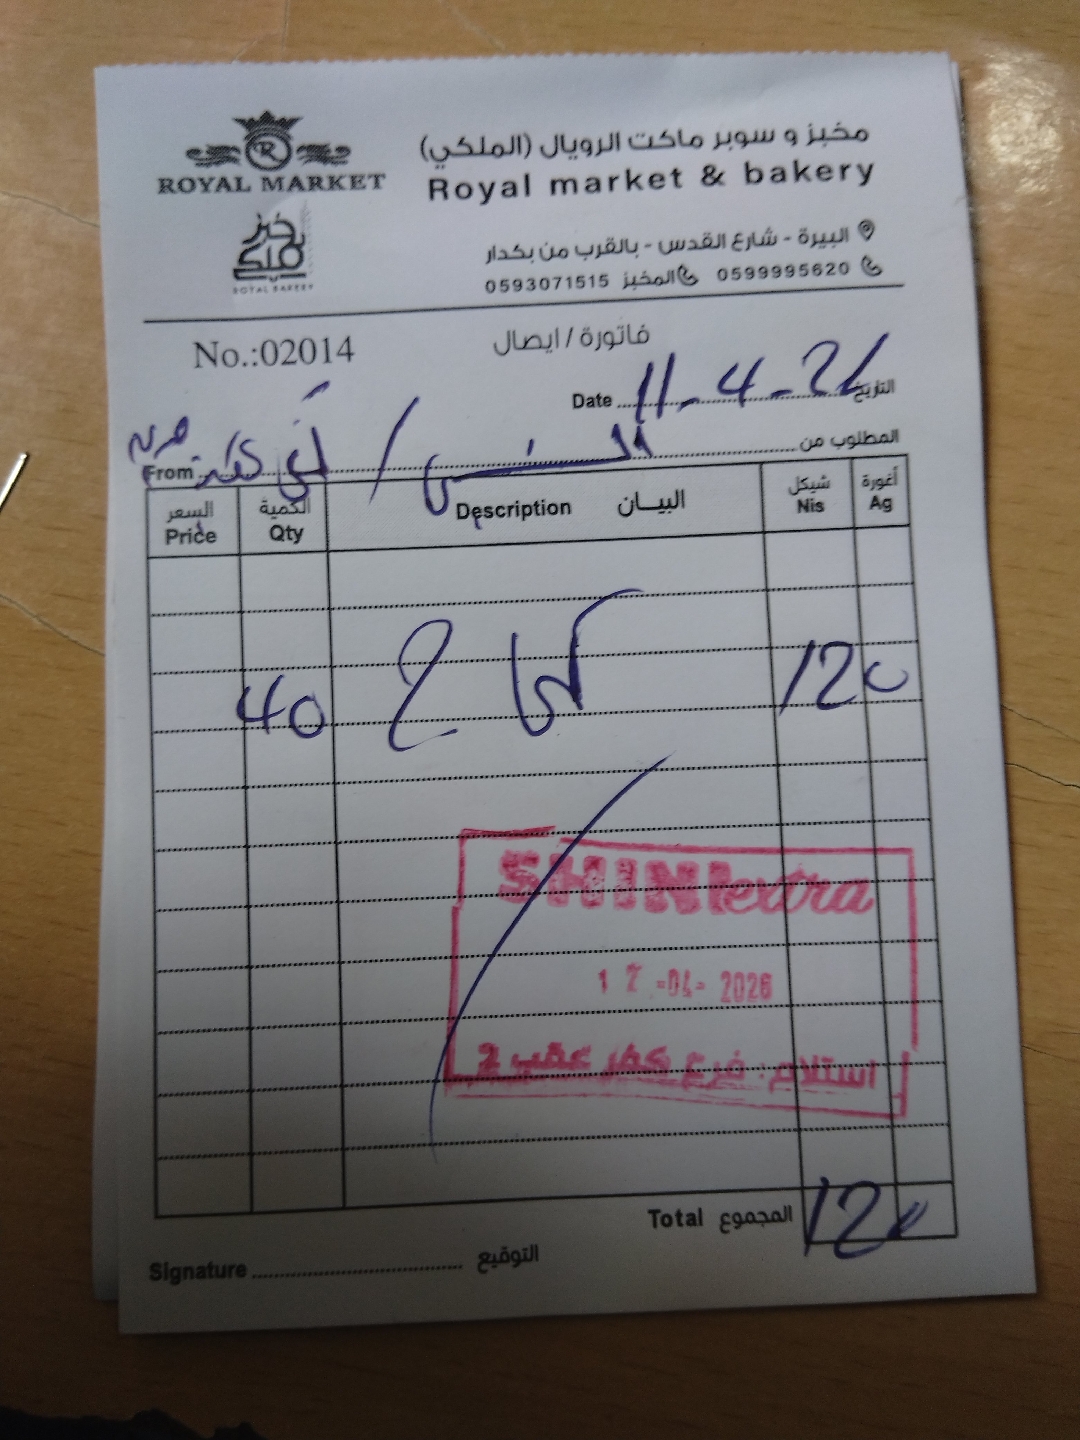 ROYAL MARKET
خبز ملكي
ROYAL BAKERY
مخبز و سوبر ماكت الرويال (الملكي)
Royal market & bakery
البيرة - شارع القدس - بالقرب من بكدار
0599995620 المخبز 0593071515
No.:02014
فاتورة / ايصال
Date 11-4-26 التاريخ
المطلوب من
From
السعر الكمية البيان شيكل أغورة
Price Qty Description Nis Ag
40 120
SHINI extra
12-04-2026
استلام: فرع كفر عقب 2
Total المجموع 120
Signature التوقيع